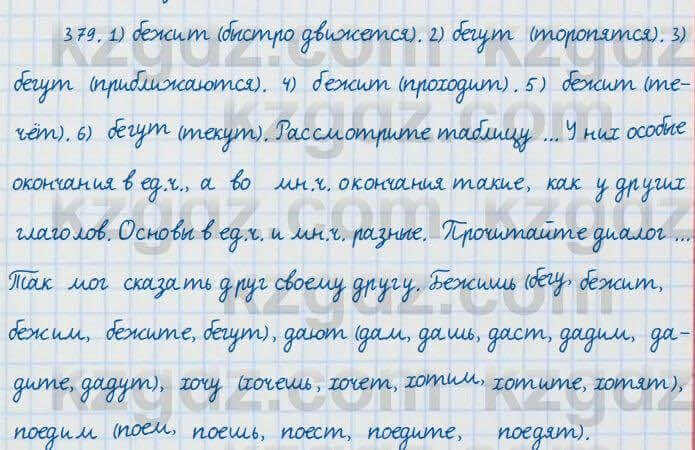 379. 1) бежит (быстро движется). 2) бегут (торопятся). 3)
бегут (приближаются). 4) бежит (проходит). 5) бежит (те-
чёт). 6) бегут (текут). Рассмотрите таблицу ... У них особые
окончания в ед.ч., а во мн.ч. окончания такие, как у других
глаголов. Основы в ед.ч. и мн.ч. разные. Прочитайте диалог ...
Так мог сказать друг своему другу. Бежишь (бегу, бежит,
бежим, бежите, бегут), дают (дам, дашь, даст, дадим, да-
дите, дадут), хочу (хочешь, хочет, хотим, хотите, хотят),
поедим (поем, поешь, поест, поедите, поедят).
kzgdz.com